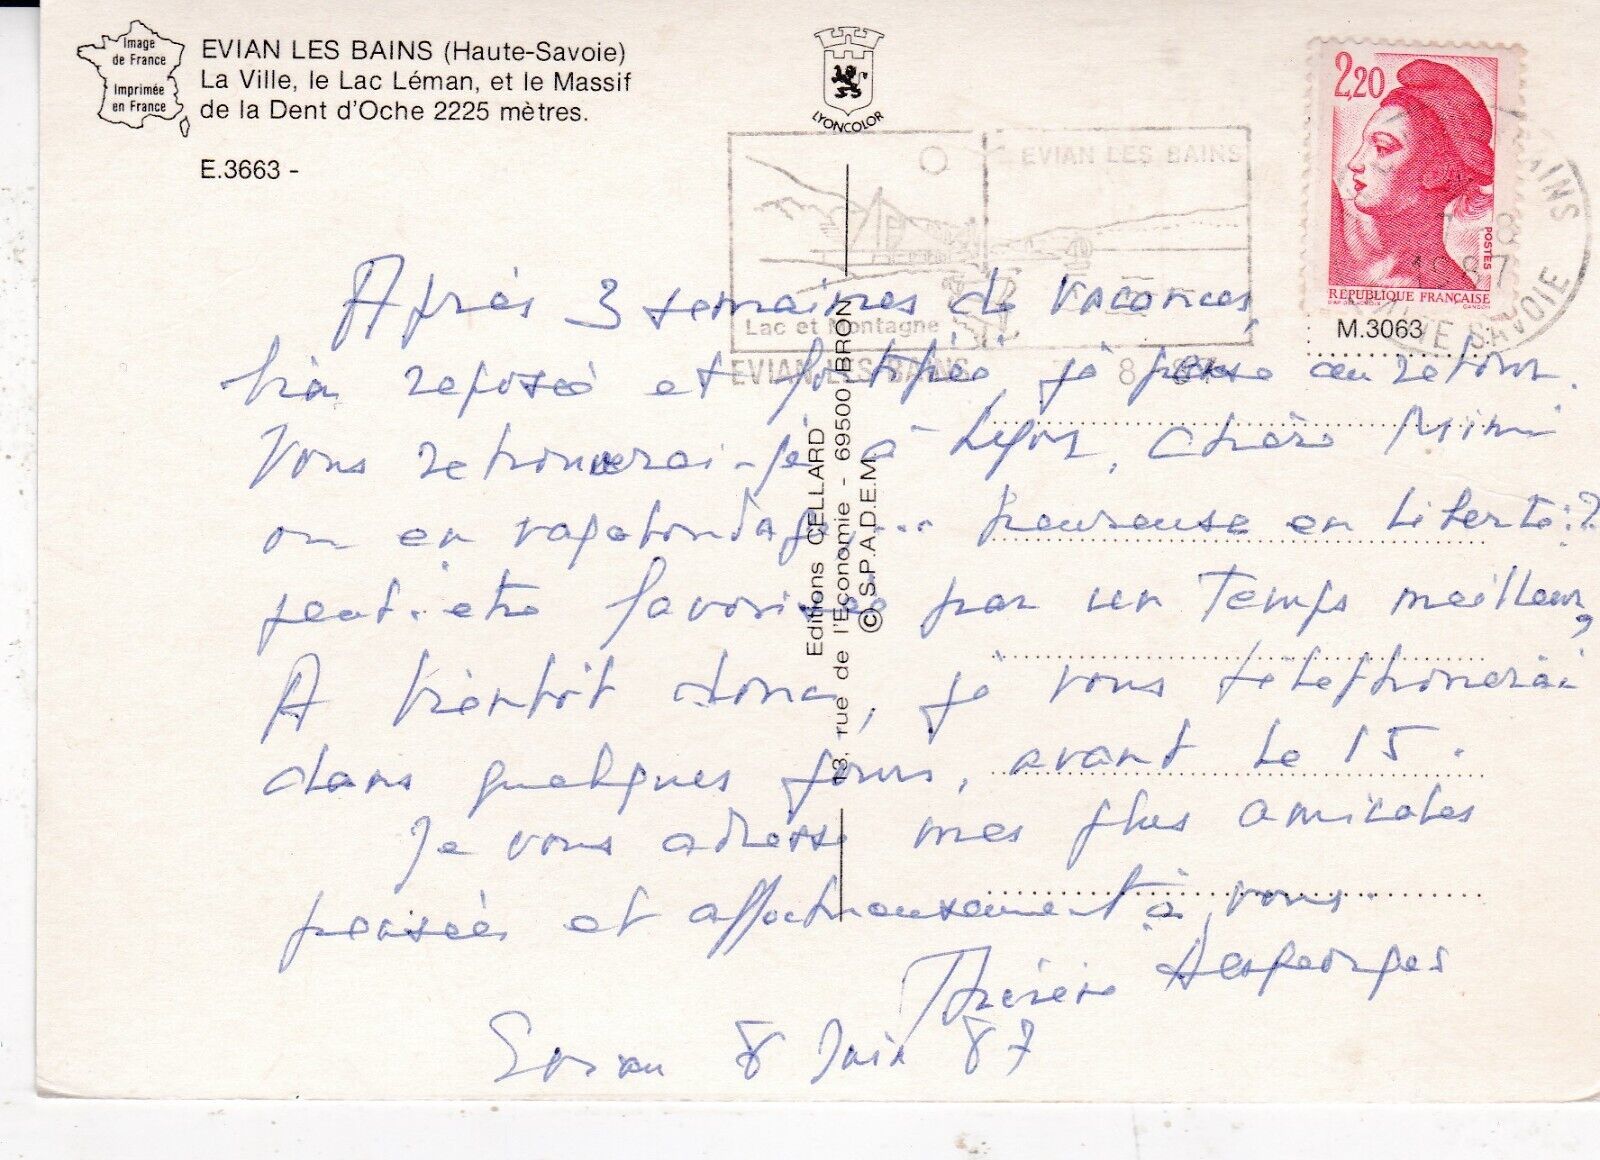 Image
de France
Imprimée
en France
EVIAN LES BAINS (Haute-Savoie)
La Ville, le Lac Léman, et le Massif
de la Dent d'Oche 2225 mètres.
E.3663 -
LYONCOLOR
EVIAN LES BAINS
Lac et Montagne
EVIAN LES BAINS
2,20
POSTES
RÉPUBLIQUE FRANÇAISE
1987
SAVOIE
M.3063
Editions CELLARD
13, rue de l'Economie - 69500 BRON
© S.P.A.D.E.M.
Après 3 semaines de vacances,
bien reposée et fortifiée, je pense au retour.
Vous retrouverai-je à Lyon, chère Mimi
ou en vagabondage... heureuse en liberté:?
peut-être favorisée par un temps meilleur,
A bientôt donc, je vous téléphonerai
dans quelques jours, avant le 15.
Je vous adresse mes plus amicales
pensées et affectueusement à vous.
Thérèse Desgeorges
Evian 8 Juin 87